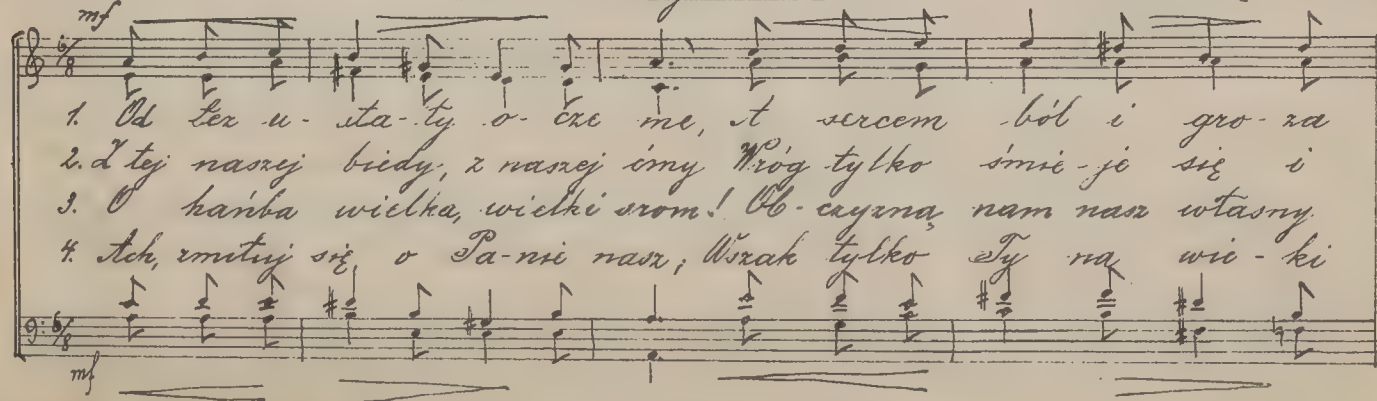 mf
6/8
1. Od łez u-sta-ły o-cze me, A sercem ból i gro-za
2. Z tej naszej biedy, z naszej ćmy Wróg tylko śmie-je się i
3. O hańba wielka, wielki srom! Ob-czyzną nam nasz własny
4. Ach, zmiłuj się, o Pa-nie nasz; Wszak tylko Ty na wie-ki
6/8
mf